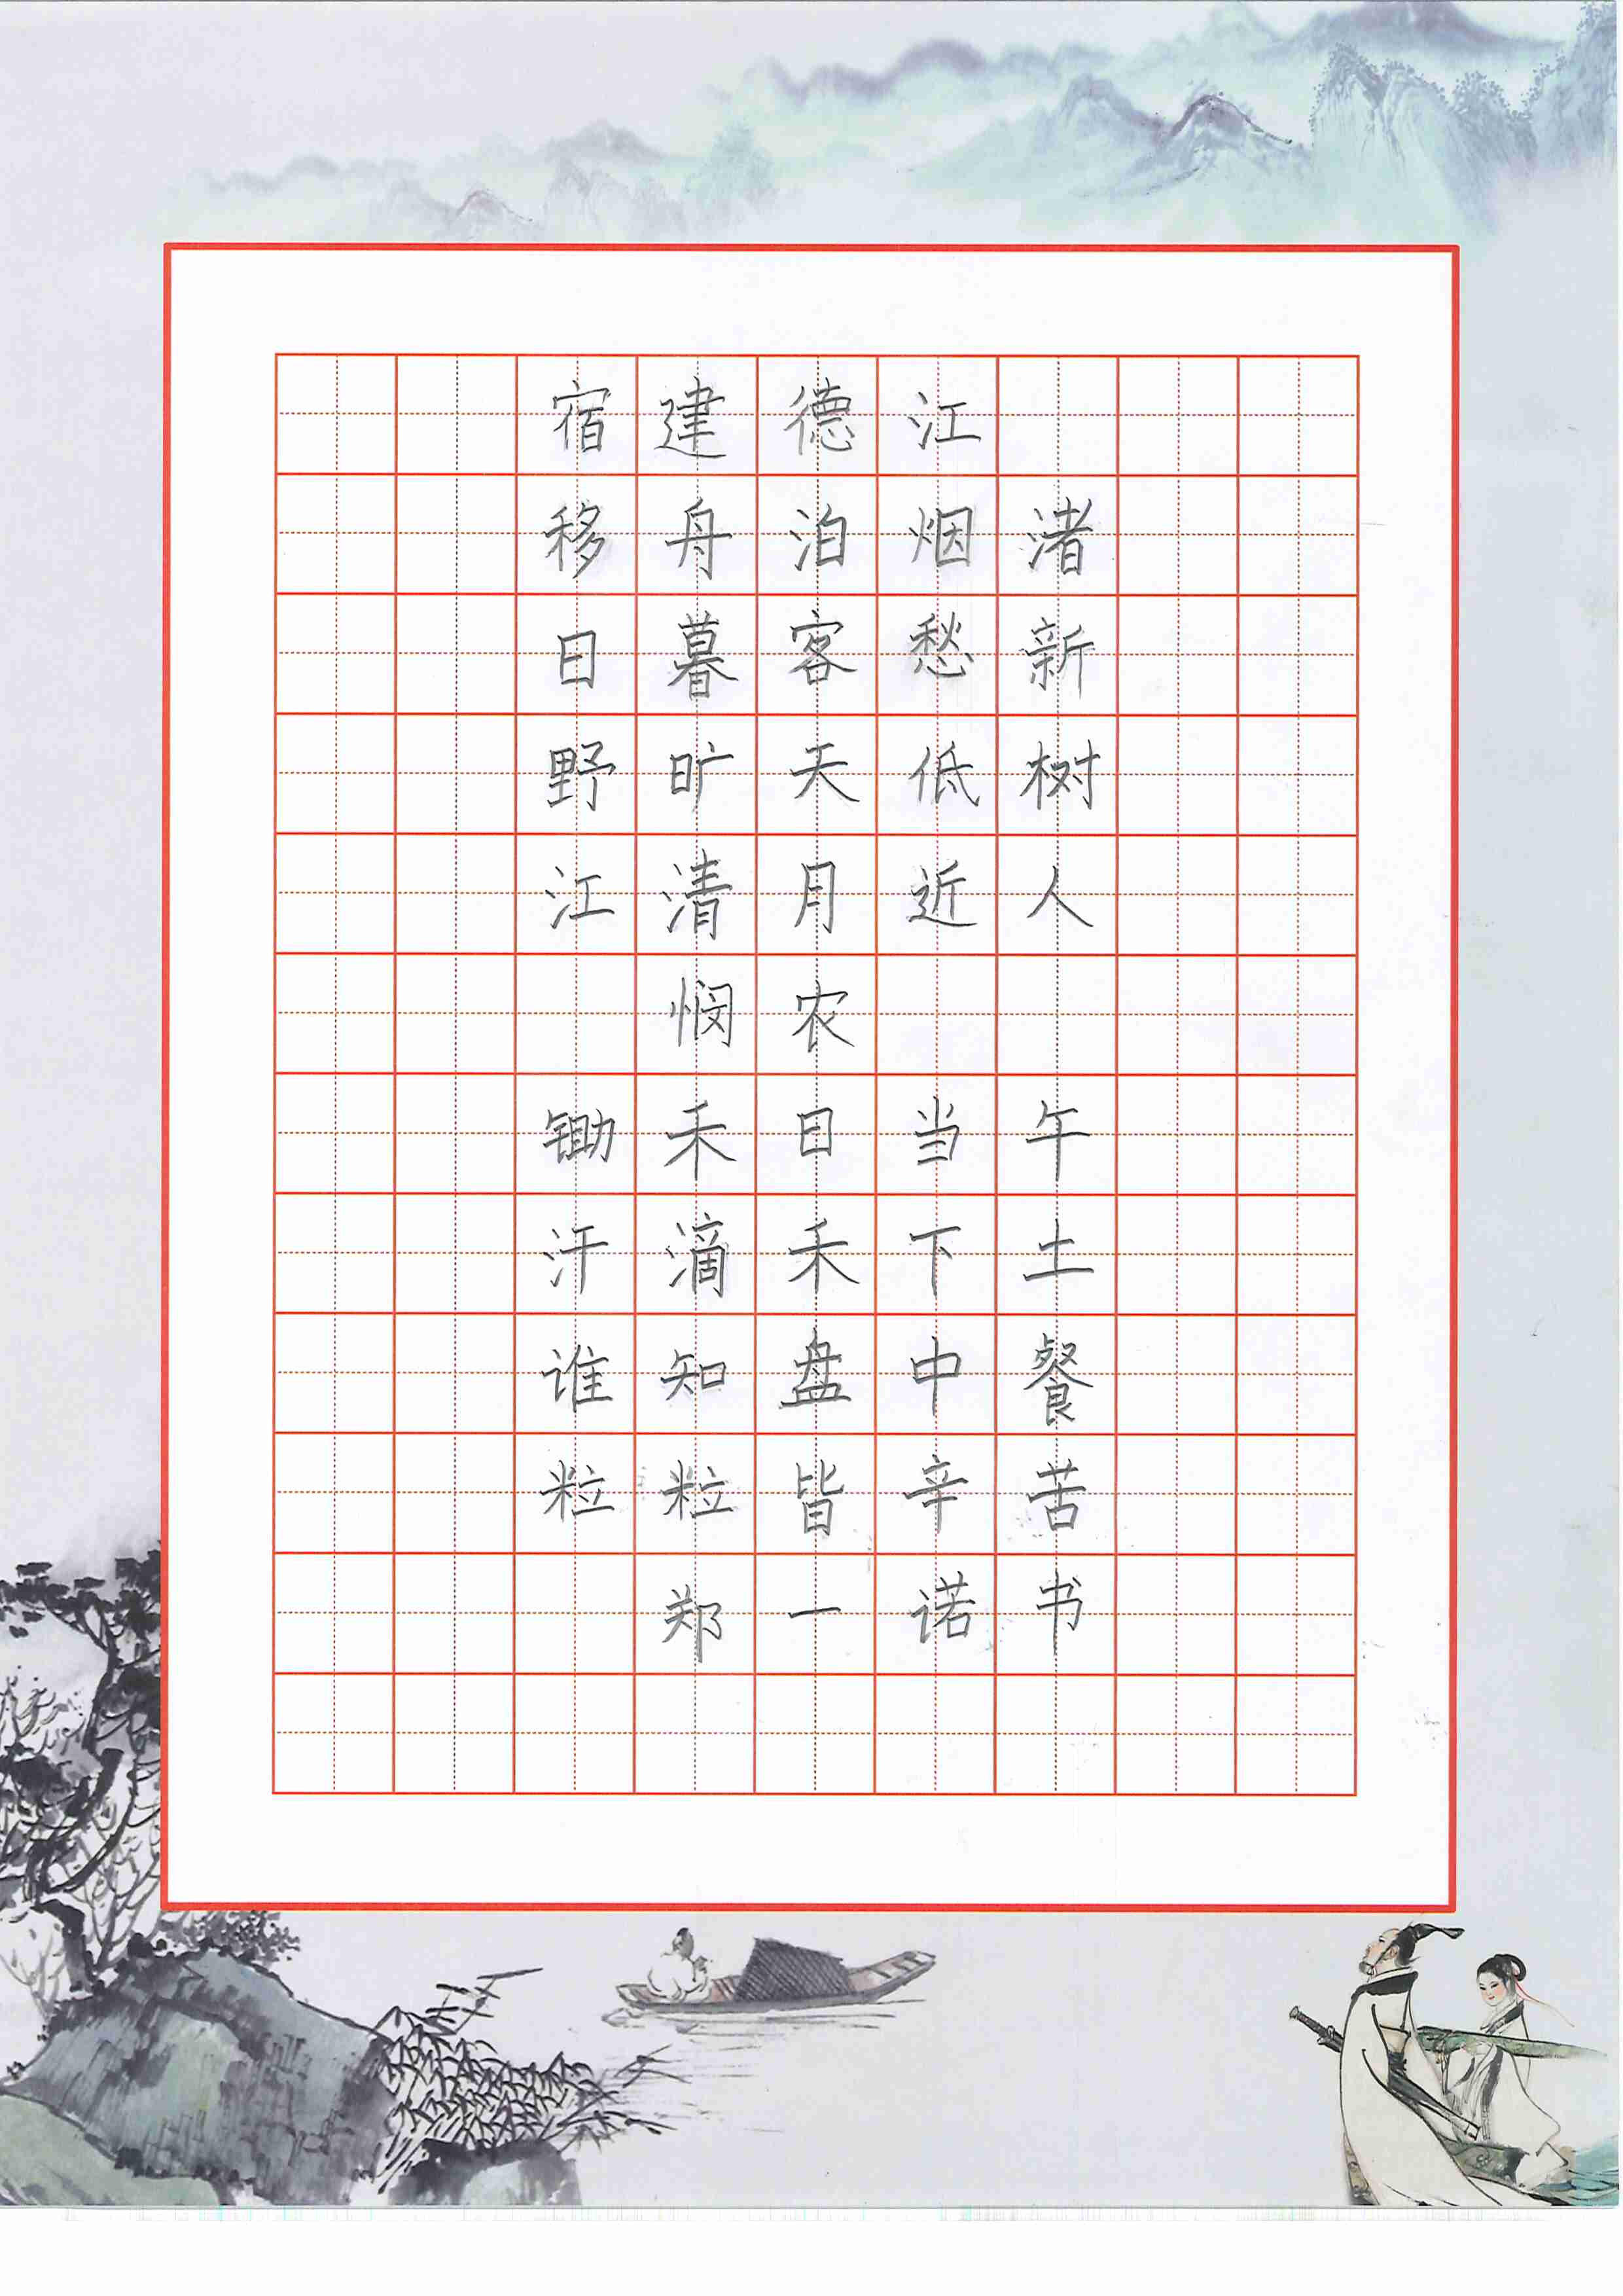 宿建德江
移舟泊烟渚
日暮客愁新
野旷天低树
江清月近人
悯农
锄禾日当午
汗滴禾下土
谁知盘中餐
粒粒皆辛苦
郑一诺书